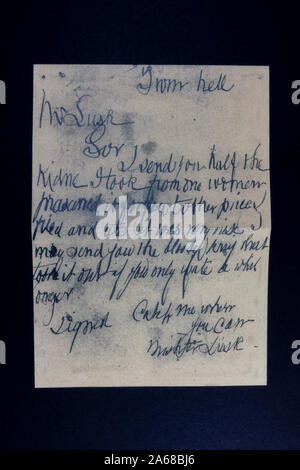 From hell
Mr Lusk
Sor
I send you half the
Kidne I took from one women
prasarved it for you tother piece I
fried and ate it was very nise I
may send you the bloody knif that
took it out if you only wate a whil
longer
signed Catch me when
you can
Mishter Lusk
a
a
a
alamy
2A68BJ6